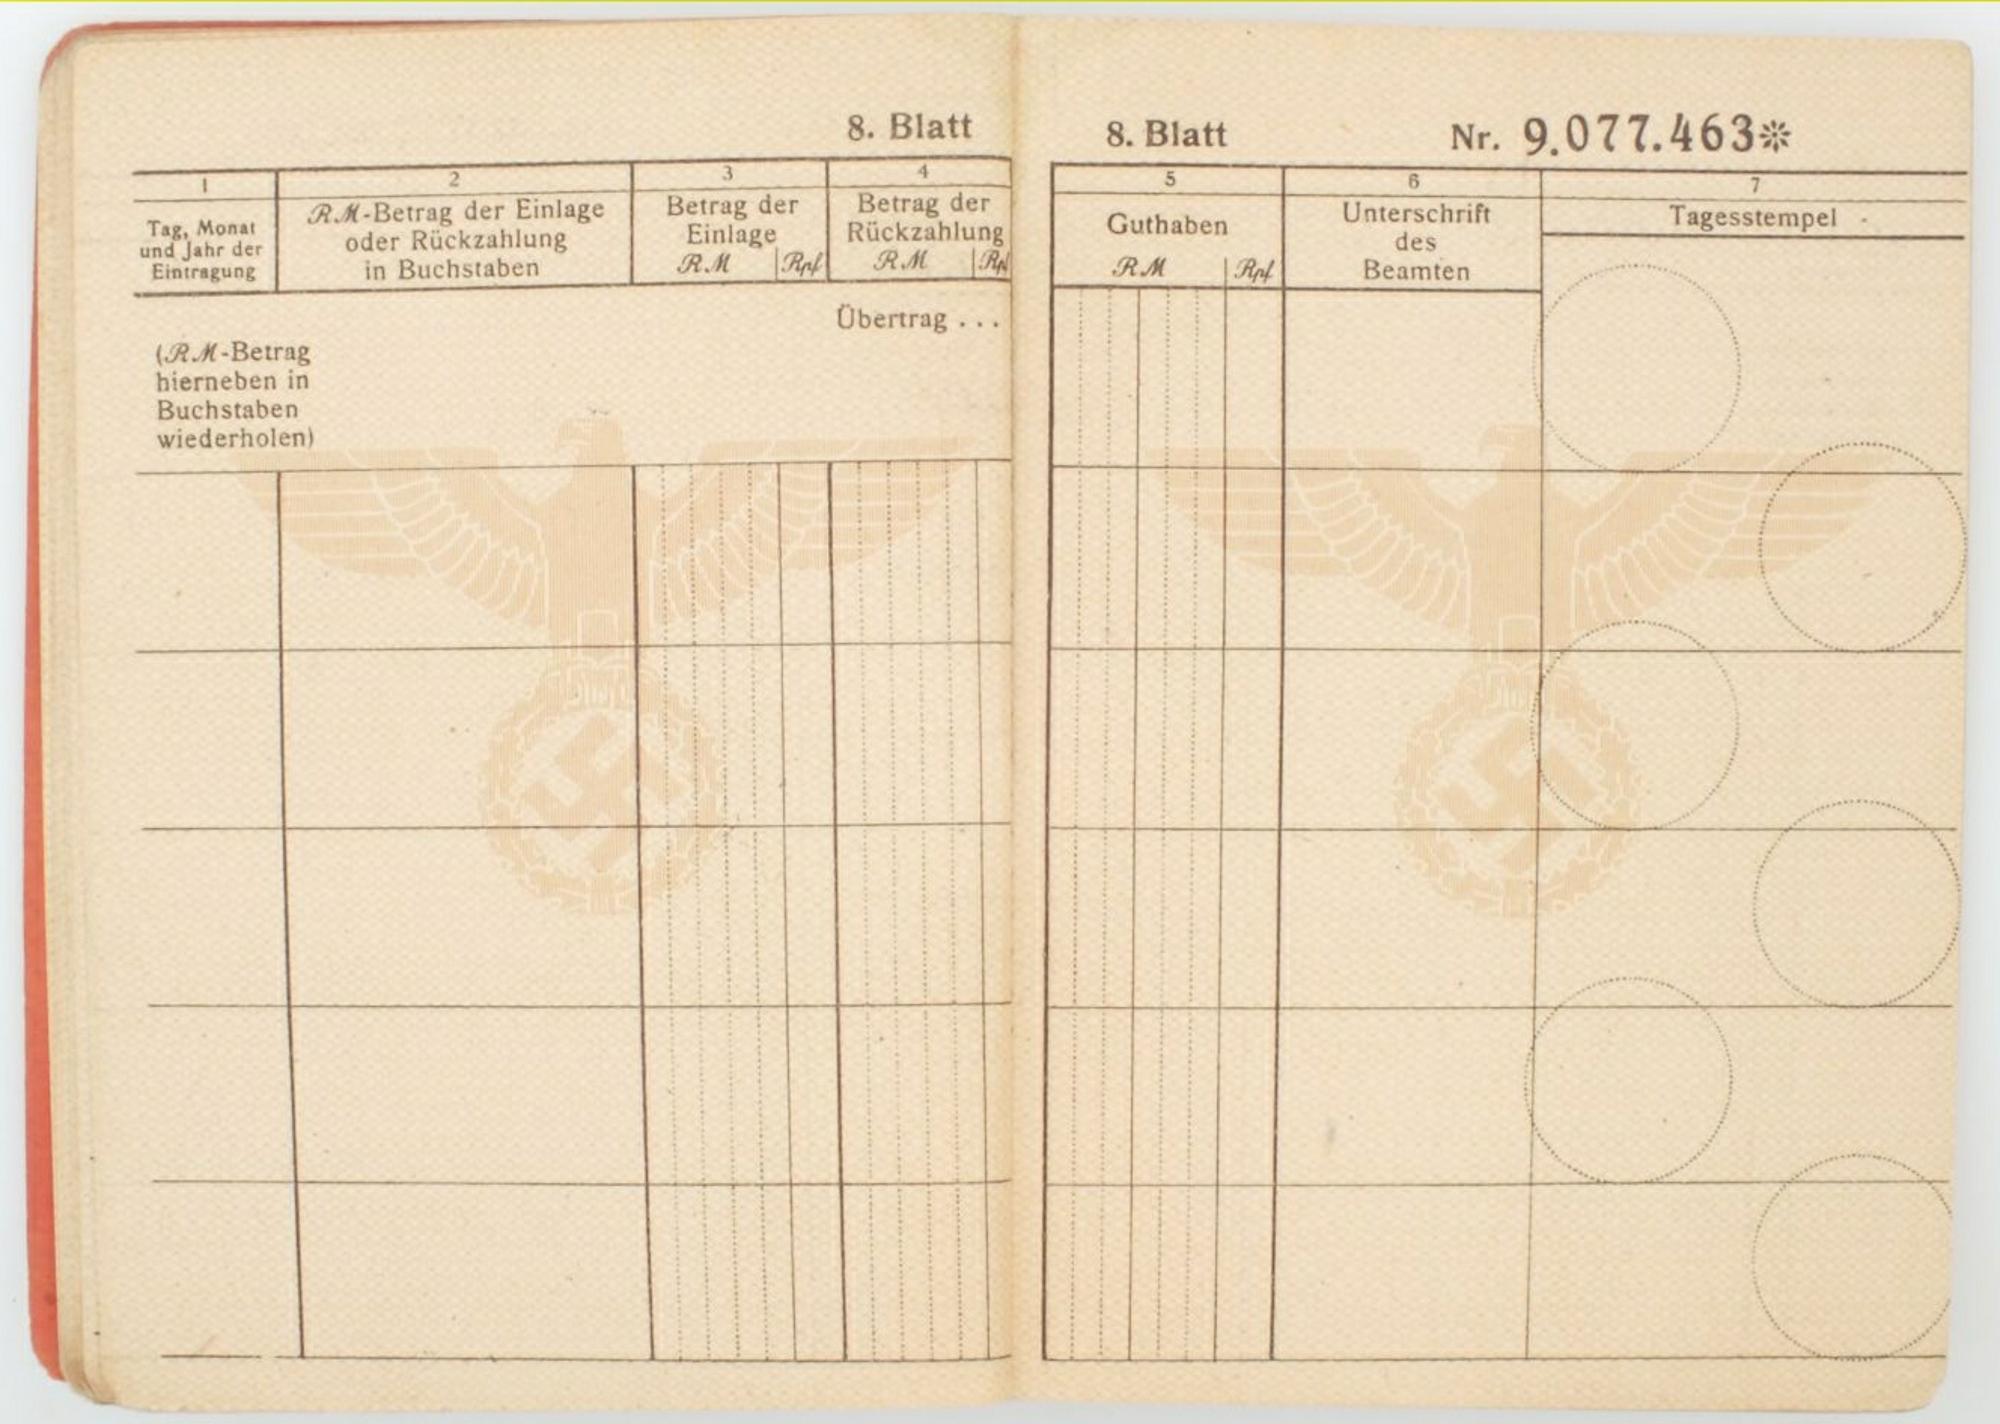 8. Blatt
1
2
3
4
Tag, Monat
und Jahr der
Eintragung
RM-Betrag der Einlage
oder Rückzahlung
in Buchstaben
Betrag der
Einlage
RM Rpf
Betrag der
Rückzahlung
RM Rpf
Übertrag . . .
(RM-Betrag
hierneben in
Buchstaben
wiederholen)
8. Blatt Nr. 9.077.463*
5
6
7
Guthaben
RM Rpf
Unterschrift
des
Beamten
Tagesstempel